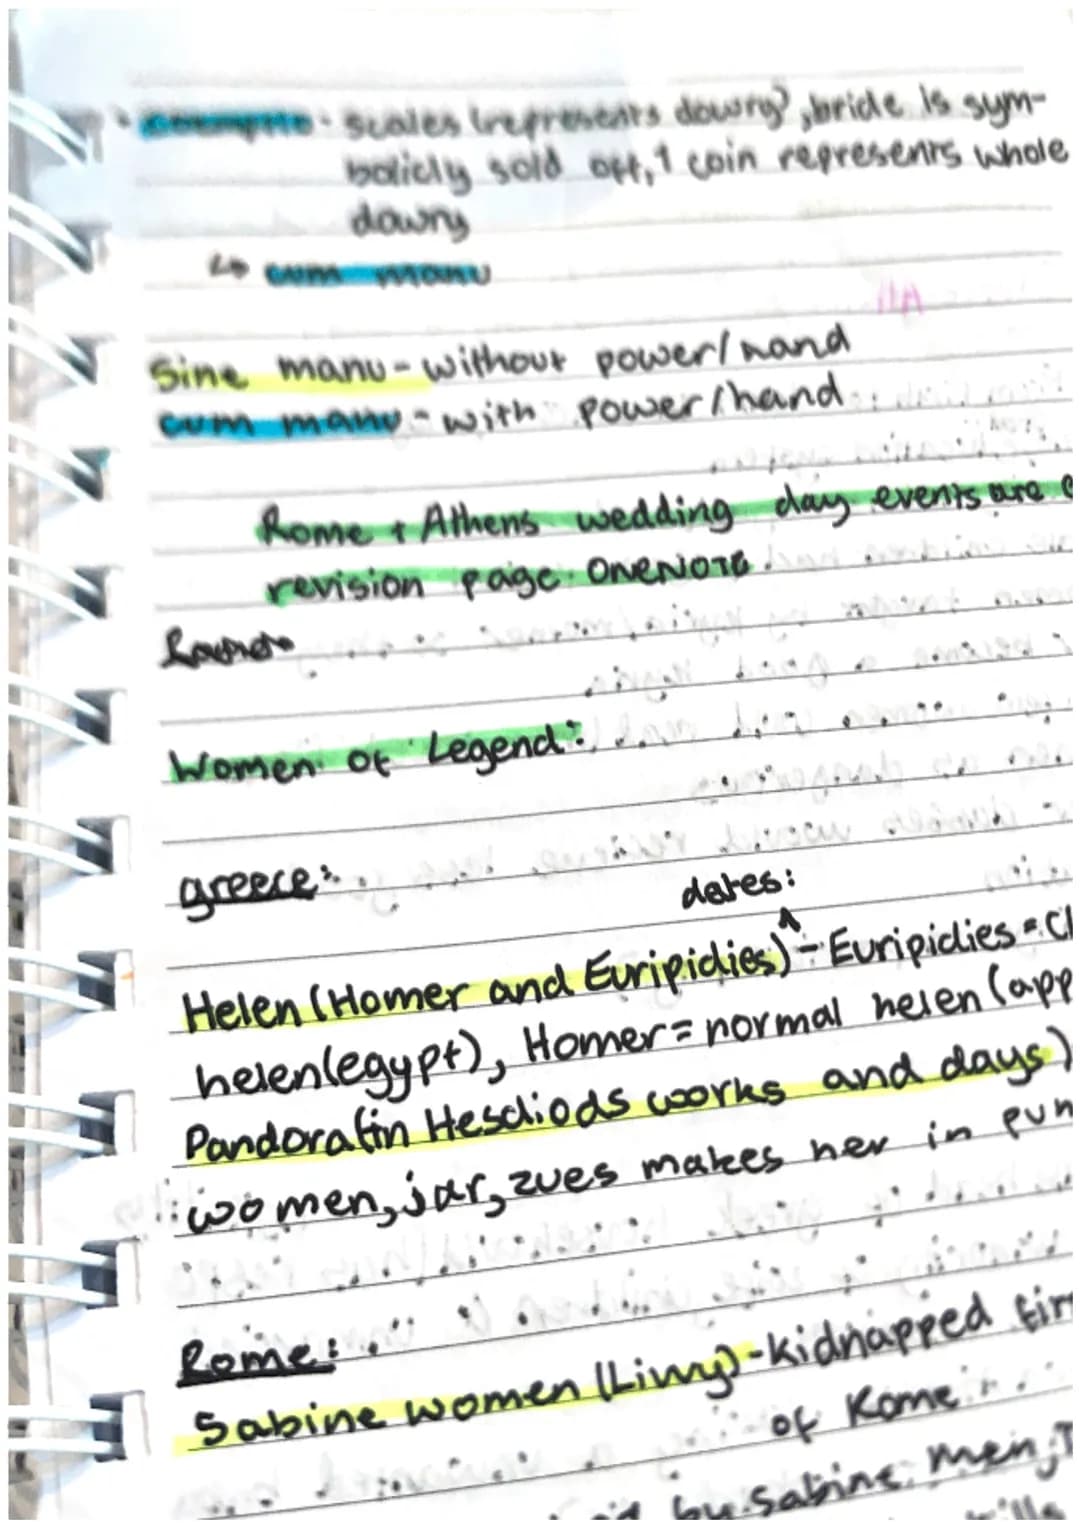 coemptio - scales (represents dowry), bride is sym-
bolicly sold off, 1 coin represents whole
dowry
↳ cum manu
Sine manu - without power/hand
cum manu - with power/hand
Rome + Athens wedding day events are
revision page OneNOTE
Women of Legend:
greece:
dates:
Helen (Homer and Euripidies) - Euripidies =
helen(egypt), Homer = normal helen (app
Pandora (in Hesdiods works and days)
women, jar, zues makes her in pun
Rome:
Sabine women (Livvy) - kidnapped
of Rome
by sabine men,